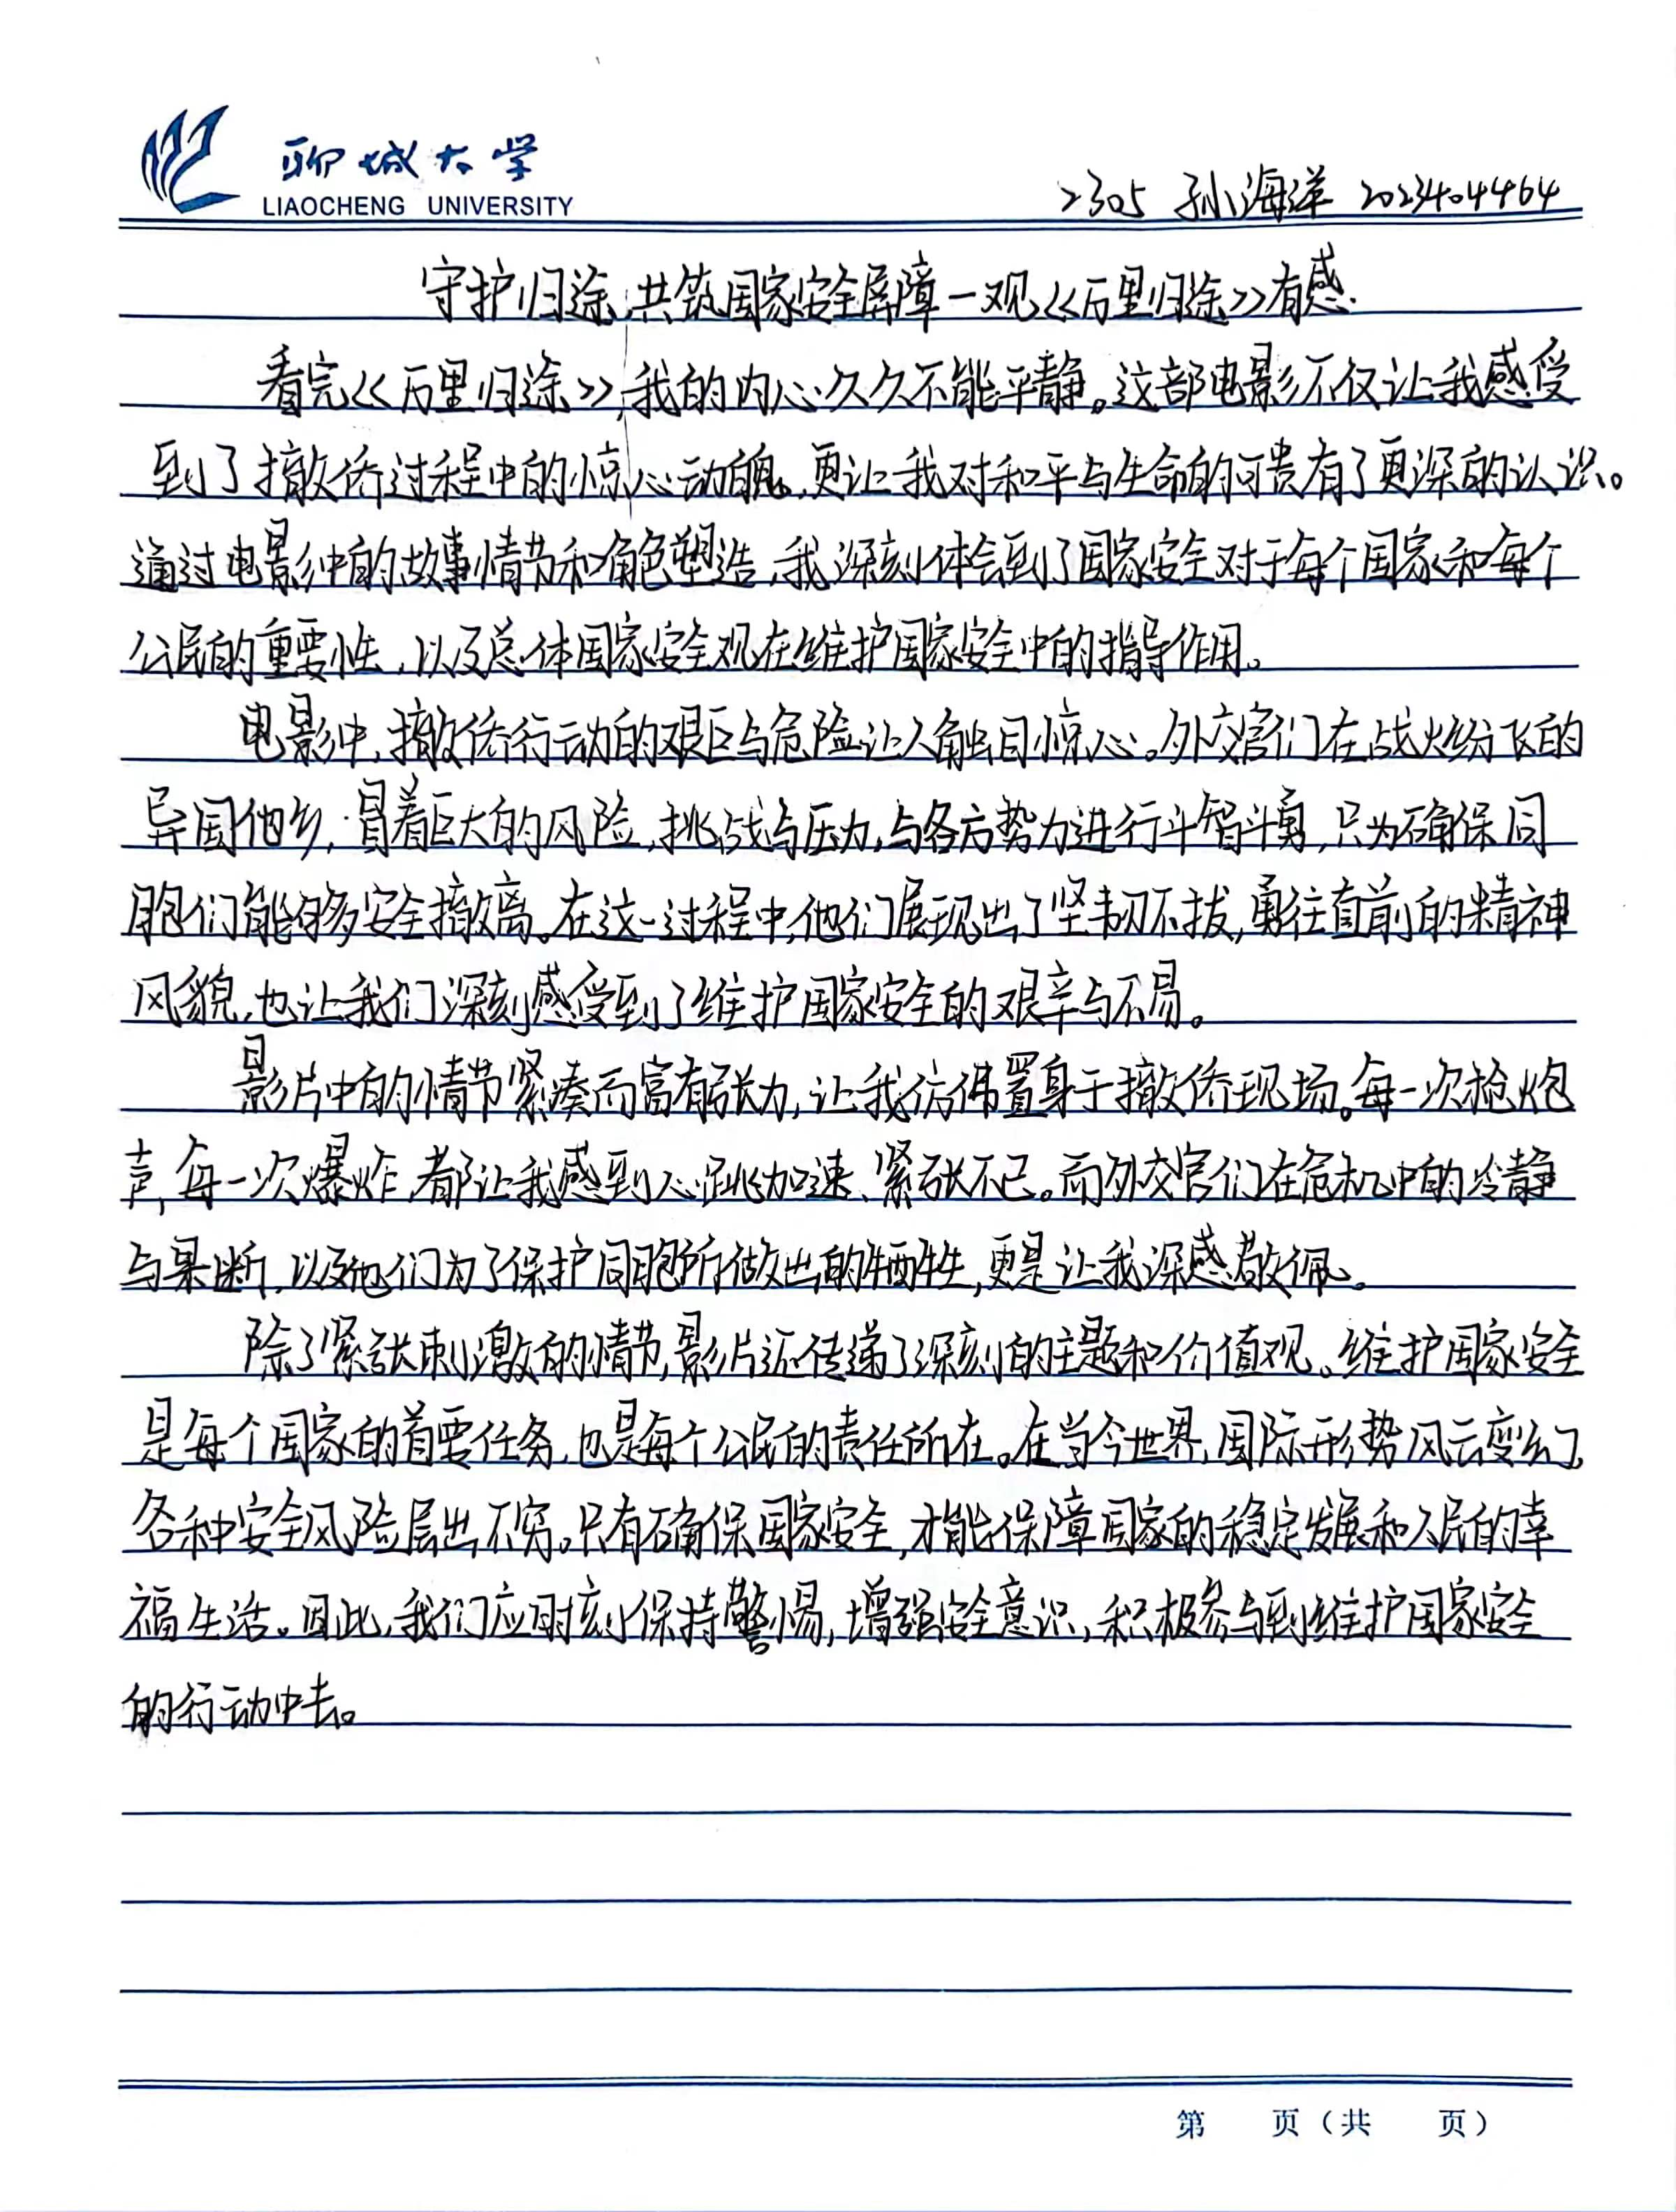 聊城大学
LIAOCHENG UNIVERSITY
2305 孙海洋 2023404464
守护归途,共筑国家安全屏障—观《万里归途》有感.
看完《万里归途》,我的内心久久不能平静。这部电影不仅让我感受
到了撤侨过程中的惊心动魄,更让我对和平与生命的可贵有了更深的认识。
通过电影中的故事情节和角色塑造,我深刻体会到了国家安全对于每个国家和每个
公民的重要性,以及总体国家安全观在维护国家安全中的指导作用。
电影中,撤侨行动的艰巨与危险让人触目惊心。外交官们在战火纷飞的
异国他乡,冒着巨大的风险,挑战与压力,与各方势力进行斗智斗勇,只为确保同
胞们能够安全撤离。在这一过程中,他们展现出了坚韧不拔,勇往直前的精神
风貌,也让我们深刻感受到了维护国家安全的艰辛与不易。
影片中的情节紧凑而富有张力,让我仿佛置身于撤侨现场。每一次枪炮
声,每一次爆炸,都让我感到心跳加速、紧张不已。而外交官们在危机中的冷静
与果断,以及他们为了保护同胞所做出的牺牲,更是让我深感敬佩。
除了紧张刺激的情节,影片还传递了深刻的主题和价值观。维护国家安全
是每个国家的首要任务,也是每个公民的责任所在。在当今世界,国际形势风云变幻,
各种安全风险层出不穷。只有确保国家安全,才能保障国家的稳定发展和人民的幸
福生活。因此,我们应时刻保持警惕,增强安全意识,积极参与到维护国家安全
的行动中去。
第 页（共 页）